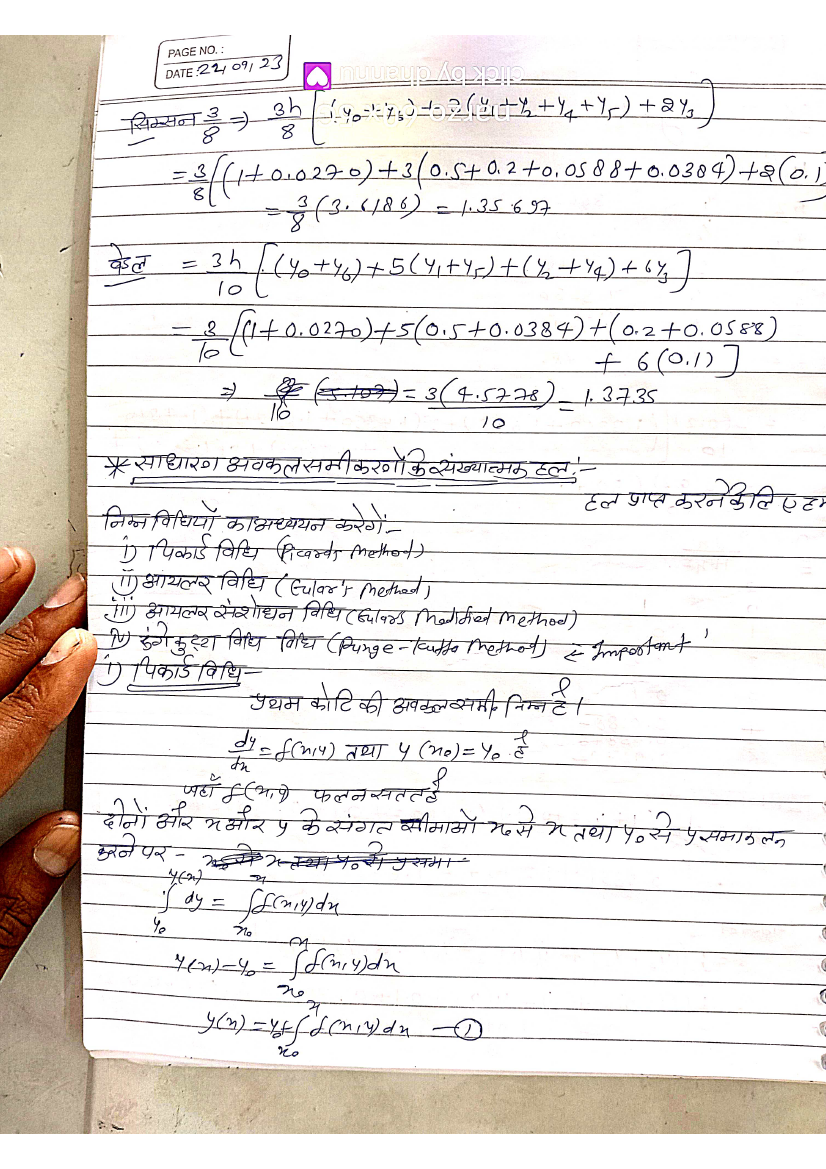 PAGE NO. :
DATE : 22/09/23
click by dhannu
सिम्सन 3/8 ⇒ 3h/8 [(y₀+y₆) + 3(y₁+y₂+y₄+y₅) + 2y₃]
= 3/8 [(1+0.0270) + 3(0.5+0.2+0.0588+0.0384) + 2(0.1)
= 3/8 (3.6186) = 1.35697
वेडल = 3h/10 [(y₀+y₆) + 5(y₁+y₅) + (y₂+y₄) + 6y₃]
= 3/10 [(1+0.0270) + 5(0.5+0.0384) + (0.2+0.0588)
+ 6(0.1)]
⇒ = 3(4.5778)/10 = 1.3735
* साधारण अवकल समीकरणों के संख्यात्मक हल :-
हल प्राप्त करने के लिए हम
निम्न विधियों का अध्ययन करेगें -
i) पिकार्ड विधि (Picards Method)
ii) आयलर विधि (Eular's Method)
iii) आयलर संशोधन विधि (Eulars Modified Method)
iv) रुंगे कुट्टा विधि विधि (Runge-Kutta Method) ← Important
i) पिकार्ड विधि -
प्रथम कोटि की अवकल समी. निम्न है।
dy/dx = f(x,y) तथा y(x₀) = y₀ है
जहाँ f(x,y) फलन सतत है
दोनों और x और y के संगत सीमाओं x₀ से x तथा y₀ से y समाकलन
करने पर - x₀ से x तथा y₀ से y समा
∫_{y₀}^{y(x)} dy = ∫_{x₀}^{x} f(x,y)dx
y(x) - y₀ = ∫_{x₀}^{x} f(x,y)dx
y(x) = y₀ + ∫_{x₀}^{x} f(x,y)dx — ①